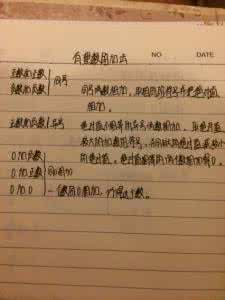 有理数的加法
NO DATE
正数加正数 同号 同号两数相加,取相同的符号,并把绝对值
负数加负数 相加。
正数加负数 异号 绝对值不相等的异号两数相加,取绝对值
较大的加数的符号,并用较大的绝对值减较小
的绝对值。绝对值相等的两个数相加得0。
0加负数
0加正数 同0相加
0加0 一个数同0相加,仍得这个数。